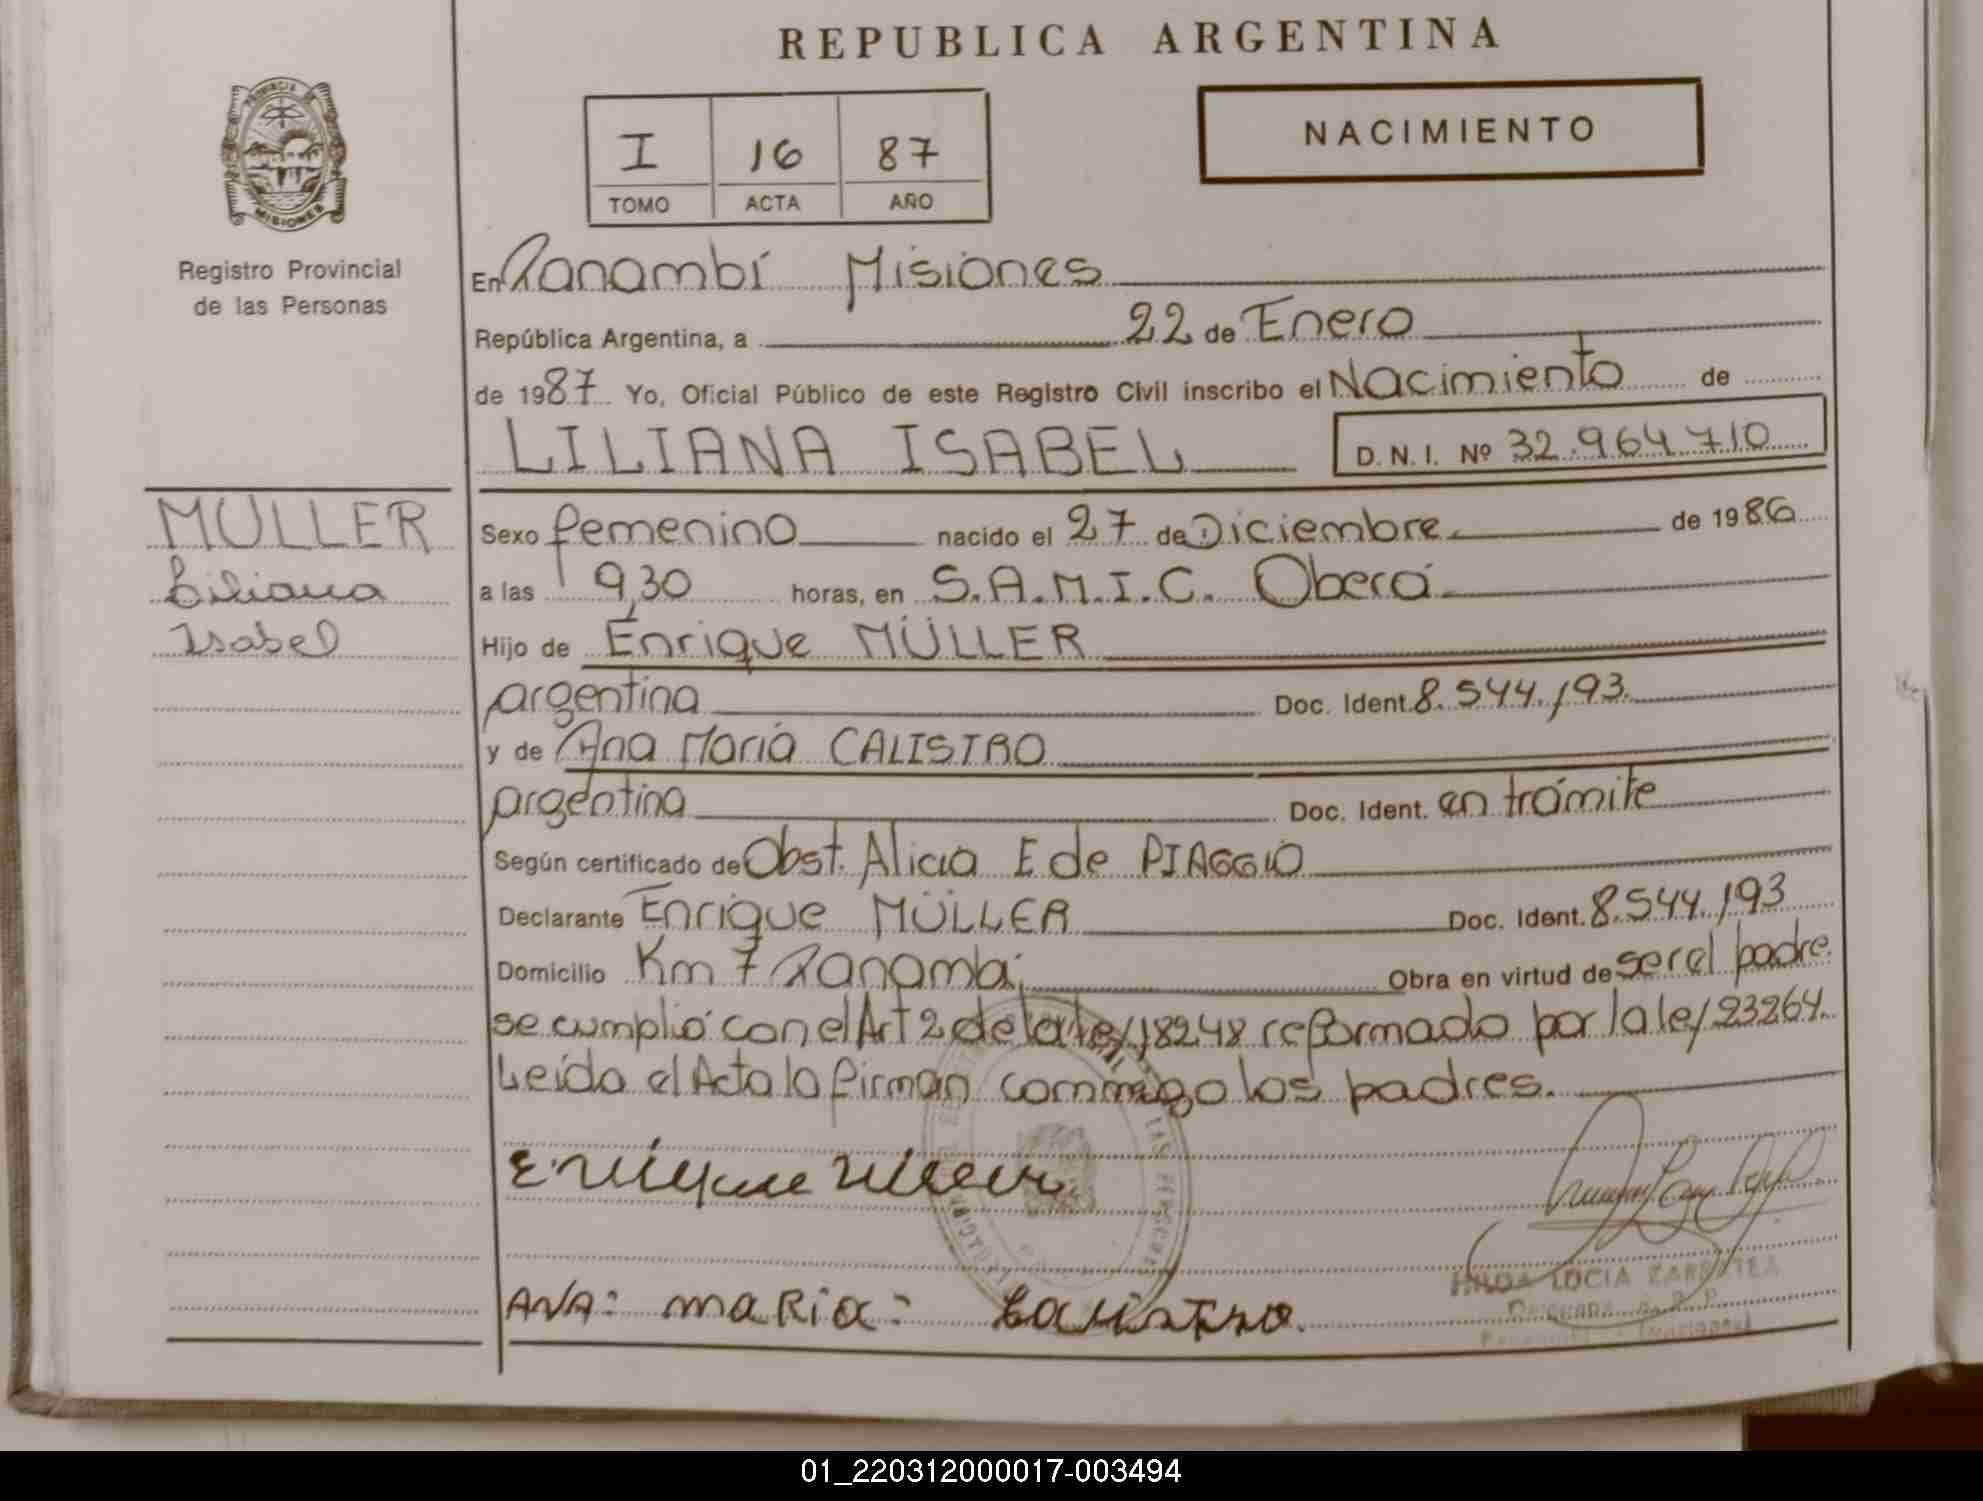 REPUBLICA ARGENTINA
PROVINCIA DE
MISIONES
Registro Provincial
de las Personas
I 16 87
TOMO ACTA AÑO
NACIMIENTO
En Panambí Misiones
República Argentina, a 22 de Enero
de 1987 Yo, Oficial Público de este Registro Civil inscribo el Nacimiento de
LILIANA ISABEL D.N.I. Nº 32.964.710
MULLER
Liliana
Isabel
Sexo femenino nacido el 27 de Diciembre de 1986
a las 9,30 horas, en S.A.M.I.C. Oberá
Hijo de Enrique MÜLLER
argentina Doc. Ident. 8.544.193
y de Ana María CALISTRO
argentina Doc. Ident. en trámite
Según certificado de Obst. Alicia E de PIAGGIO
Declarante Enrique MÜLLER Doc. Ident. 8.544.193
Domicilio Km 7 Panambí Obra en virtud de ser el padre.
se cumplió con el Art 2 de la ley 18248 reformado por la ley 23264.
Leída el Acta la firman conmigo los padres.
Enrique Muller
ANA: maRia: Calistro.
HILDA LUCIA
01_220312000017-003494